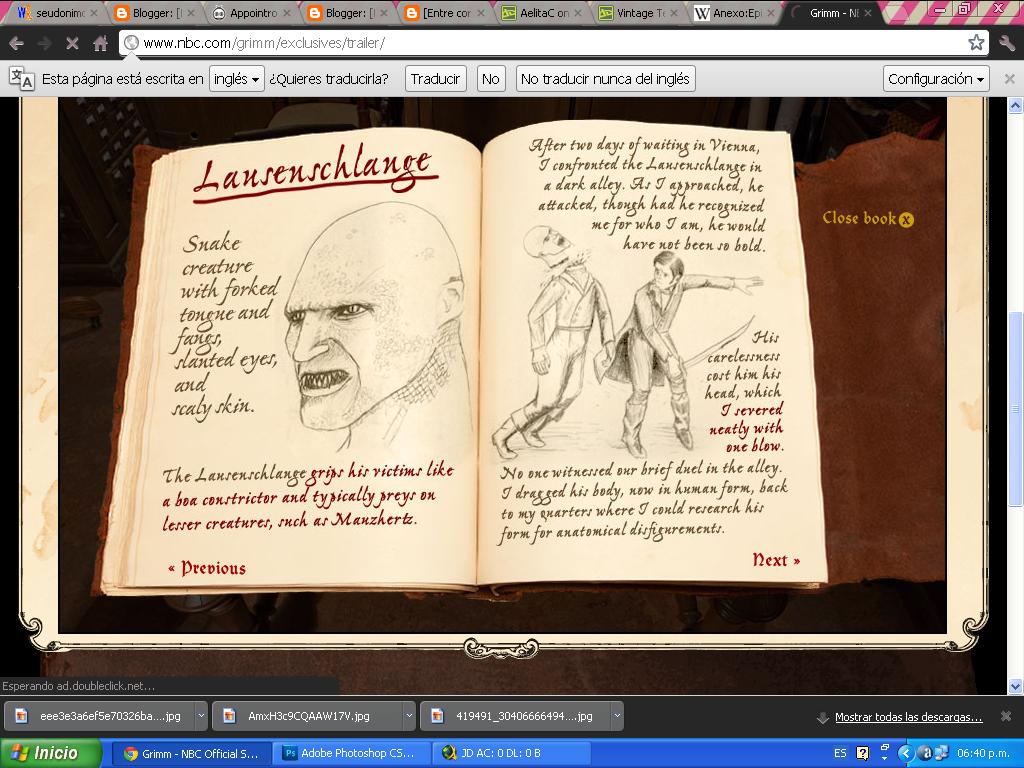 seudonimo
Blogger: [
Appointro
Blogger: [
[Entre cor
AelitaC on
Vintage Te
Anexo:Epi
Grimm - N
www.nbc.com/grimm/exclusives/trailer/
Esta página está escrita en inglés ¿Quieres traducirla? Traducir No No traducir nunca del inglés Configuración
Lausenschlange
Snake
creature
with forked
tongue and
fangs,
slanted eyes,
and
scaly skin.
The Lausenschlange grips his victims like
a boa constrictor and typically preys on
lesser creatures, such as Mauzhertz.
« Previous
After two days of waiting in Vienna,
I confronted the Lausenschlange in
a dark alley. As I approached, he
attacked, though had he recognized
me for who I am, he would
have not been so bold.
His
carelessness
cost him his
head, which
I severed
neatly with
one blow.
No one witnessed our brief duel in the alley.
I dragged his body, now in human form, back
to my quarters where I could research his
form for anatomical disfigurements.
Next »
Close book x
Esperando ad.doubleclick.net...
eee3e3a6ef5e70326ba....jpg
AmxH3c9CQAAW17V.jpg
419491_30406666494....jpg
Mostrar todas las descargas...
Inicio
Grimm - NBC Official S...
Adobe Photoshop CS...
JD AC: 0 DL: 0 B
ES
06:40 p.m.